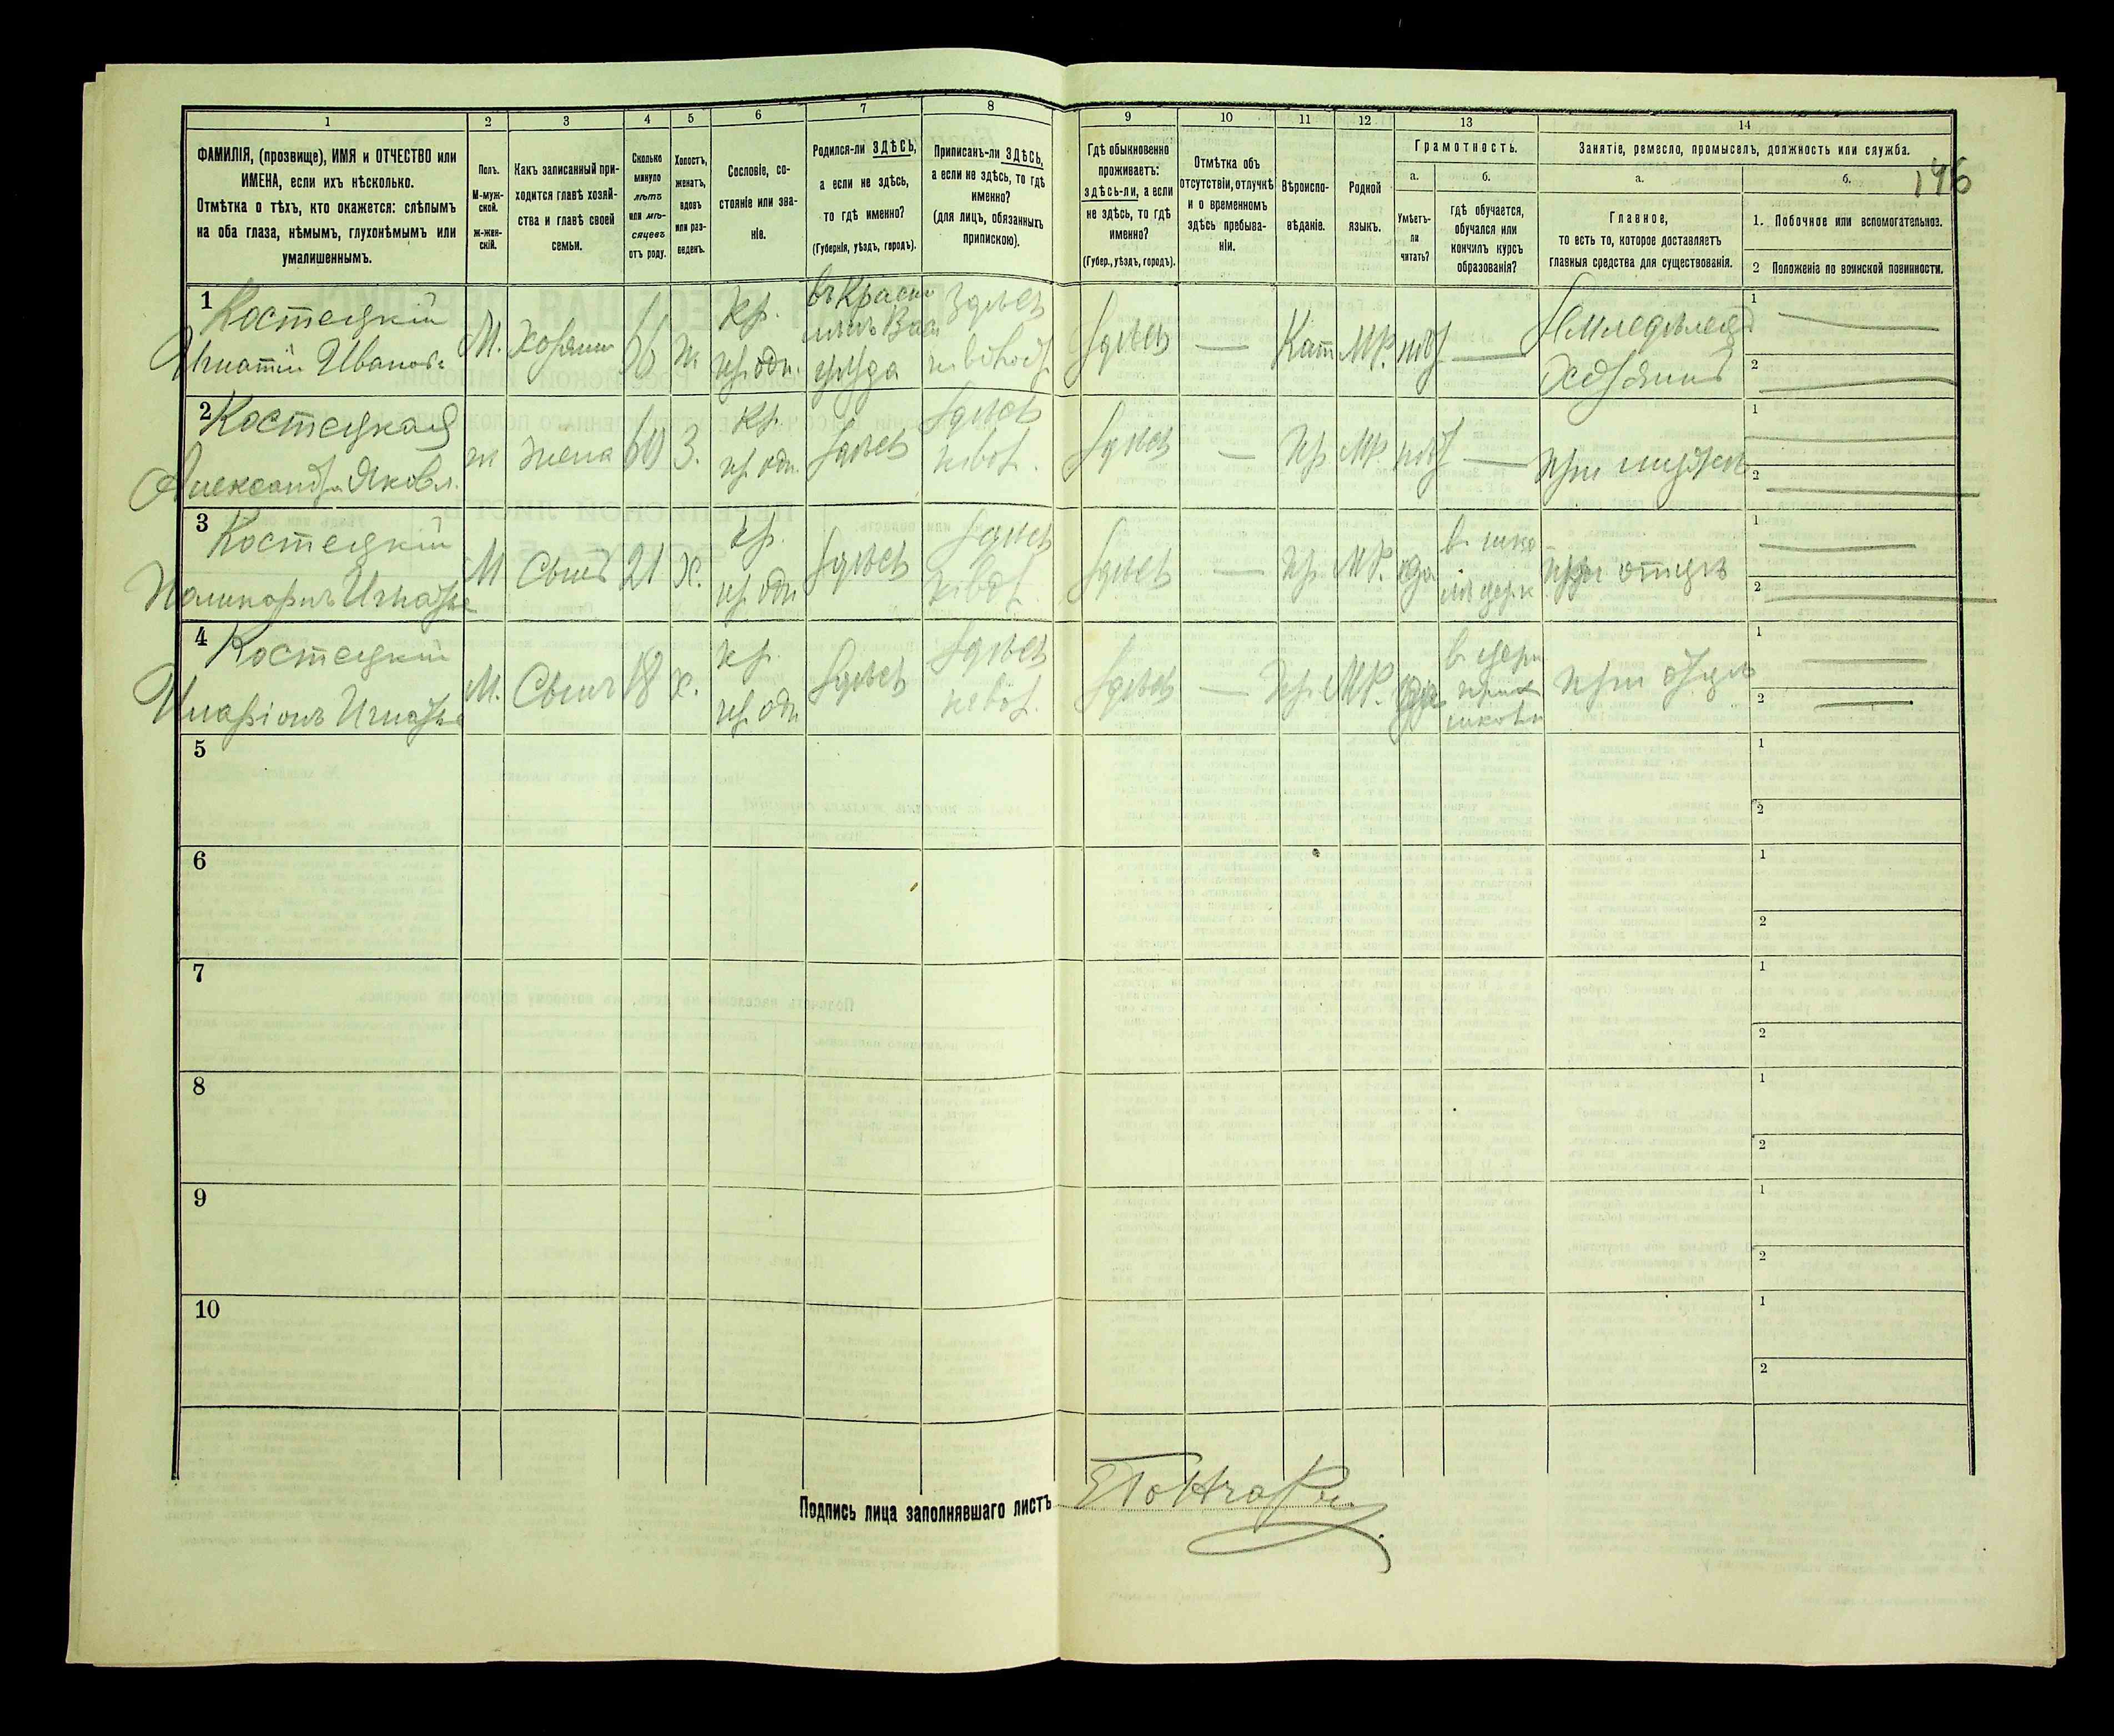 1 2 3 4 5 6 7 8 9 10 11 12 13 14
ФАМИЛІЯ, (прозвище), ИМЯ и ОТЧЕСТВО или
ИМЕНА, если ихъ нѣсколько.
Отмѣтка о тѣхъ, кто окажется: слѣпымъ
на оба глаза, нѣмымъ, глухонѣмымъ или
умалишеннымъ.
Полъ.
М-муж-
ской.
Ж-жен-
скій.
Какъ записанный при-
ходится главѣ хозяй-
ства и главѣ своей
семьи.
Сколько
минуло
лѣтъ
или мѣ-
сяцевъ
отъ роду.
Холостъ,
женатъ,
вдовъ
или раз-
веденъ.
Сословіе, со-
стояніе или зва-
ніе.
Родился-ли ЗДѢСЬ,
а если не здѣсь,
то гдѣ именно?
(Губернія, уѣздъ, городъ).
Приписанъ-ли ЗДѢСЬ,
а если не здѣсь, то гдѣ
именно?
(для лицъ, обязанныхъ
припискою).
Гдѣ обыкновенно
проживаетъ:
здѣсь-ли, а если
не здѣсь, то гдѣ
именно?
(Губер., уѣздъ, городъ).
Отмѣтка объ
отсутствіи, отлучкѣ
и о временномъ
здѣсь пребыва-
ніи.
Вѣроиспо-
вѣданіе.
Родной
языкъ.
Грамотность.
а.
Умѣетъ-
ли
читать?
б.
гдѣ обучается,
обучался или
кончилъ курсъ
образованія?
Занятіе, ремесло, промыселъ, должность или служба.
а.
Главное,
то есть то, которое доставляетъ
главныя средства для существованія.
б.
146
1. Побочное или вспомогательное.
2 Положеніе по воинской повинности.
1 Костецкій
Игнатій Иванов
М. Хозяинъ ж
кр.
Здѣсь
Здѣсь — Кат М.Р. нѣт —
Земледѣлец
Хозяинъ
1
2
2 Костецкая
Александра Яковл.
ж жена 60 З.
кр.
Здѣсь
Здѣсь
Здѣсь — Пр МР нѣт — при мужѣ
1
2
3 Костецкій
Игнатье
М Сынъ 21 Х.
кр.
Здѣсь
Здѣсь
Здѣсь — Пр М.Р. да
при отцѣ
1
2
4 Костецкій
Иларіонъ Игнатье
М. Сынъ 18 х.
кр.
Здѣсь
Здѣсь
Здѣсь — Пр М.Р. да
в церк
прих
школѣ
при отцѣ
1
2
5
1
2
6
1
2
7
1
2
8
1
2
9
1
2
10
1
2
Подпись лица заполнявшаго листъ